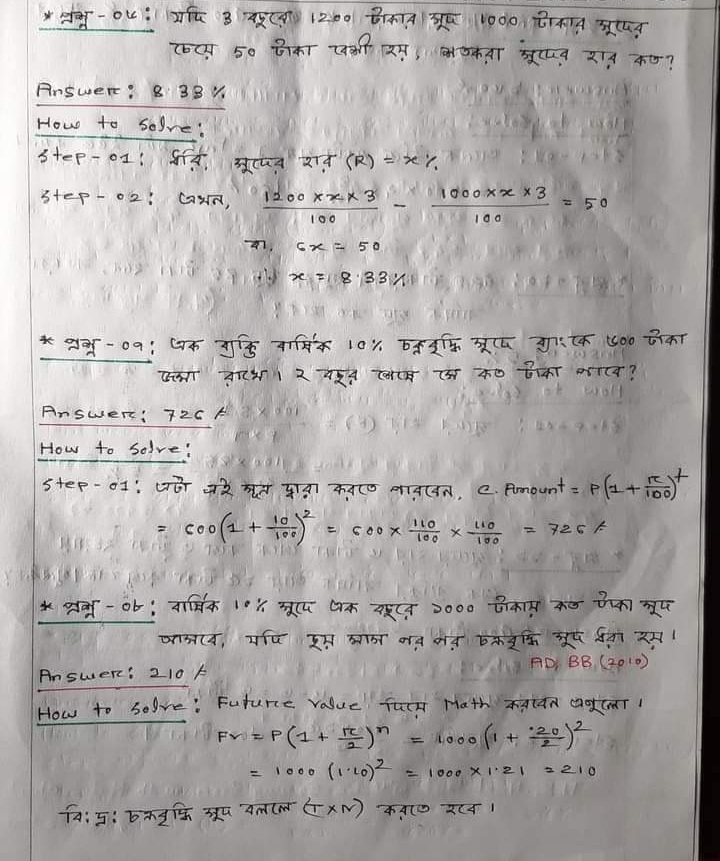 * প্রশ্ন - ০৬ : যদি 3 বছরে 1200 টাকার সুদ 1000 টাকার সুদের
চেয়ে 50 টাকা বেশী হয়, শতকরা সুদের হার কত?
Answer : 8.33%
How to Solve :
Step - 01 : ধরি, সুদের হার (R) = x%
Step - 02 : এখন, 1200 × x × 3 / 100 - 1000 × x × 3 / 100 = 50
বা, 6x = 50
∴ x = 8.33%
* প্রশ্ন - ০৭ : এক ব্যক্তি বার্ষিক 10% চক্রবৃদ্ধি সুদে ব্যাংকে ৬০০ টাকা
জমা রাখে। ২ বছর শেষে সে কত টাকা পাবে?
Answer : 726 /-
How to Solve :
Step - 01 : এটা এই সূত্র দ্বারা করতে পারবেন, C. Amount = P(1 + r/100)^t
= 600(1 + 10/100)^2 = 600 × 110/100 × 110/100 = 726 /-
* প্রশ্ন - ০৮ : বার্ষিক 10% সুদে এক বছরে ১০০০ টাকায় কত টাকা সুদ
আসবে, যদি ছয় মাস পর পর চক্রবৃদ্ধি সুদ ধরা হয়।
AD, BB (2010)
Answer : 210 /-
How to Solve : Future Value দিয়ে Math করবেন এগুলো।
FV = P(1 + r/2)^n = 1000(1 + .20/2)^2
= 1000 (1.10)^2 = 1000 × 1.21 = 210
বি: দ্র: চক্রবৃদ্ধি সুদ বললে (T×N) করতে হবে।